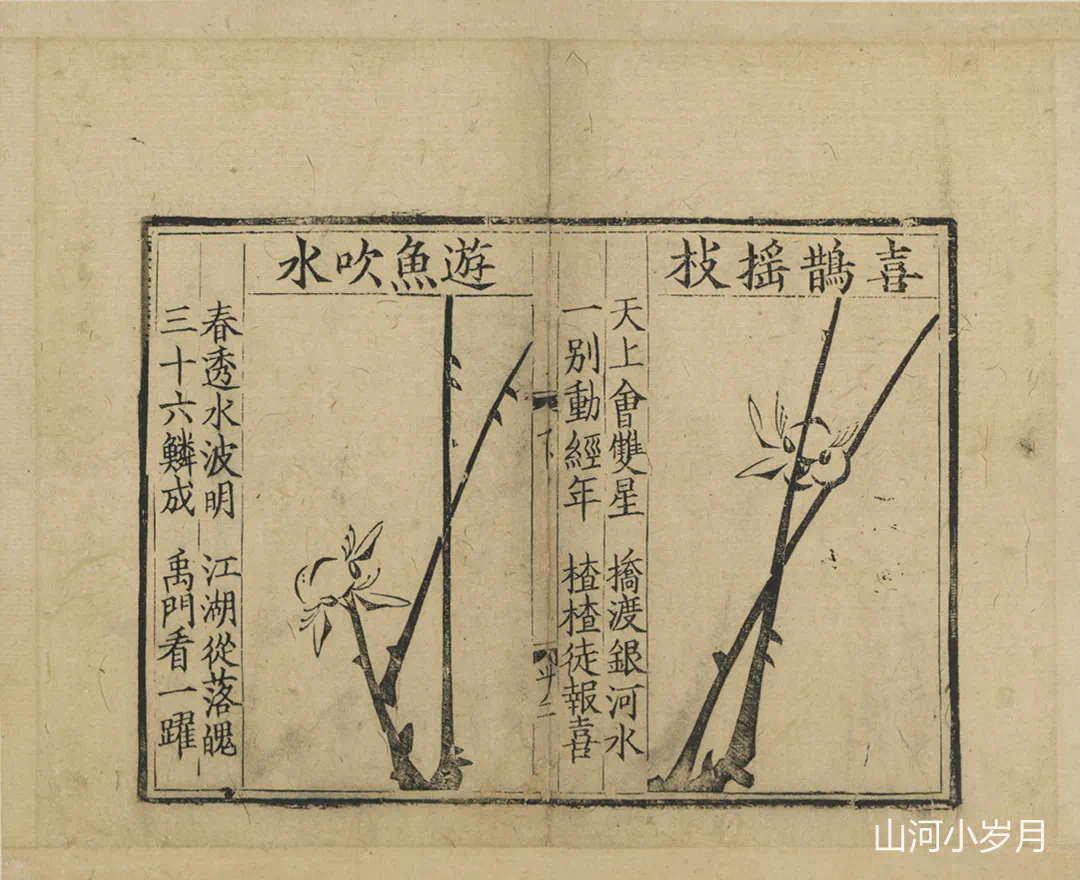 喜鵲摇枝
天上會雙星　橋渡銀河水
一别動經年　楂楂徒報喜
下
廿二
遊魚吹水
春透水波明　江湖從落魄
三十六鱗成　禹門看一躍
山河小岁月